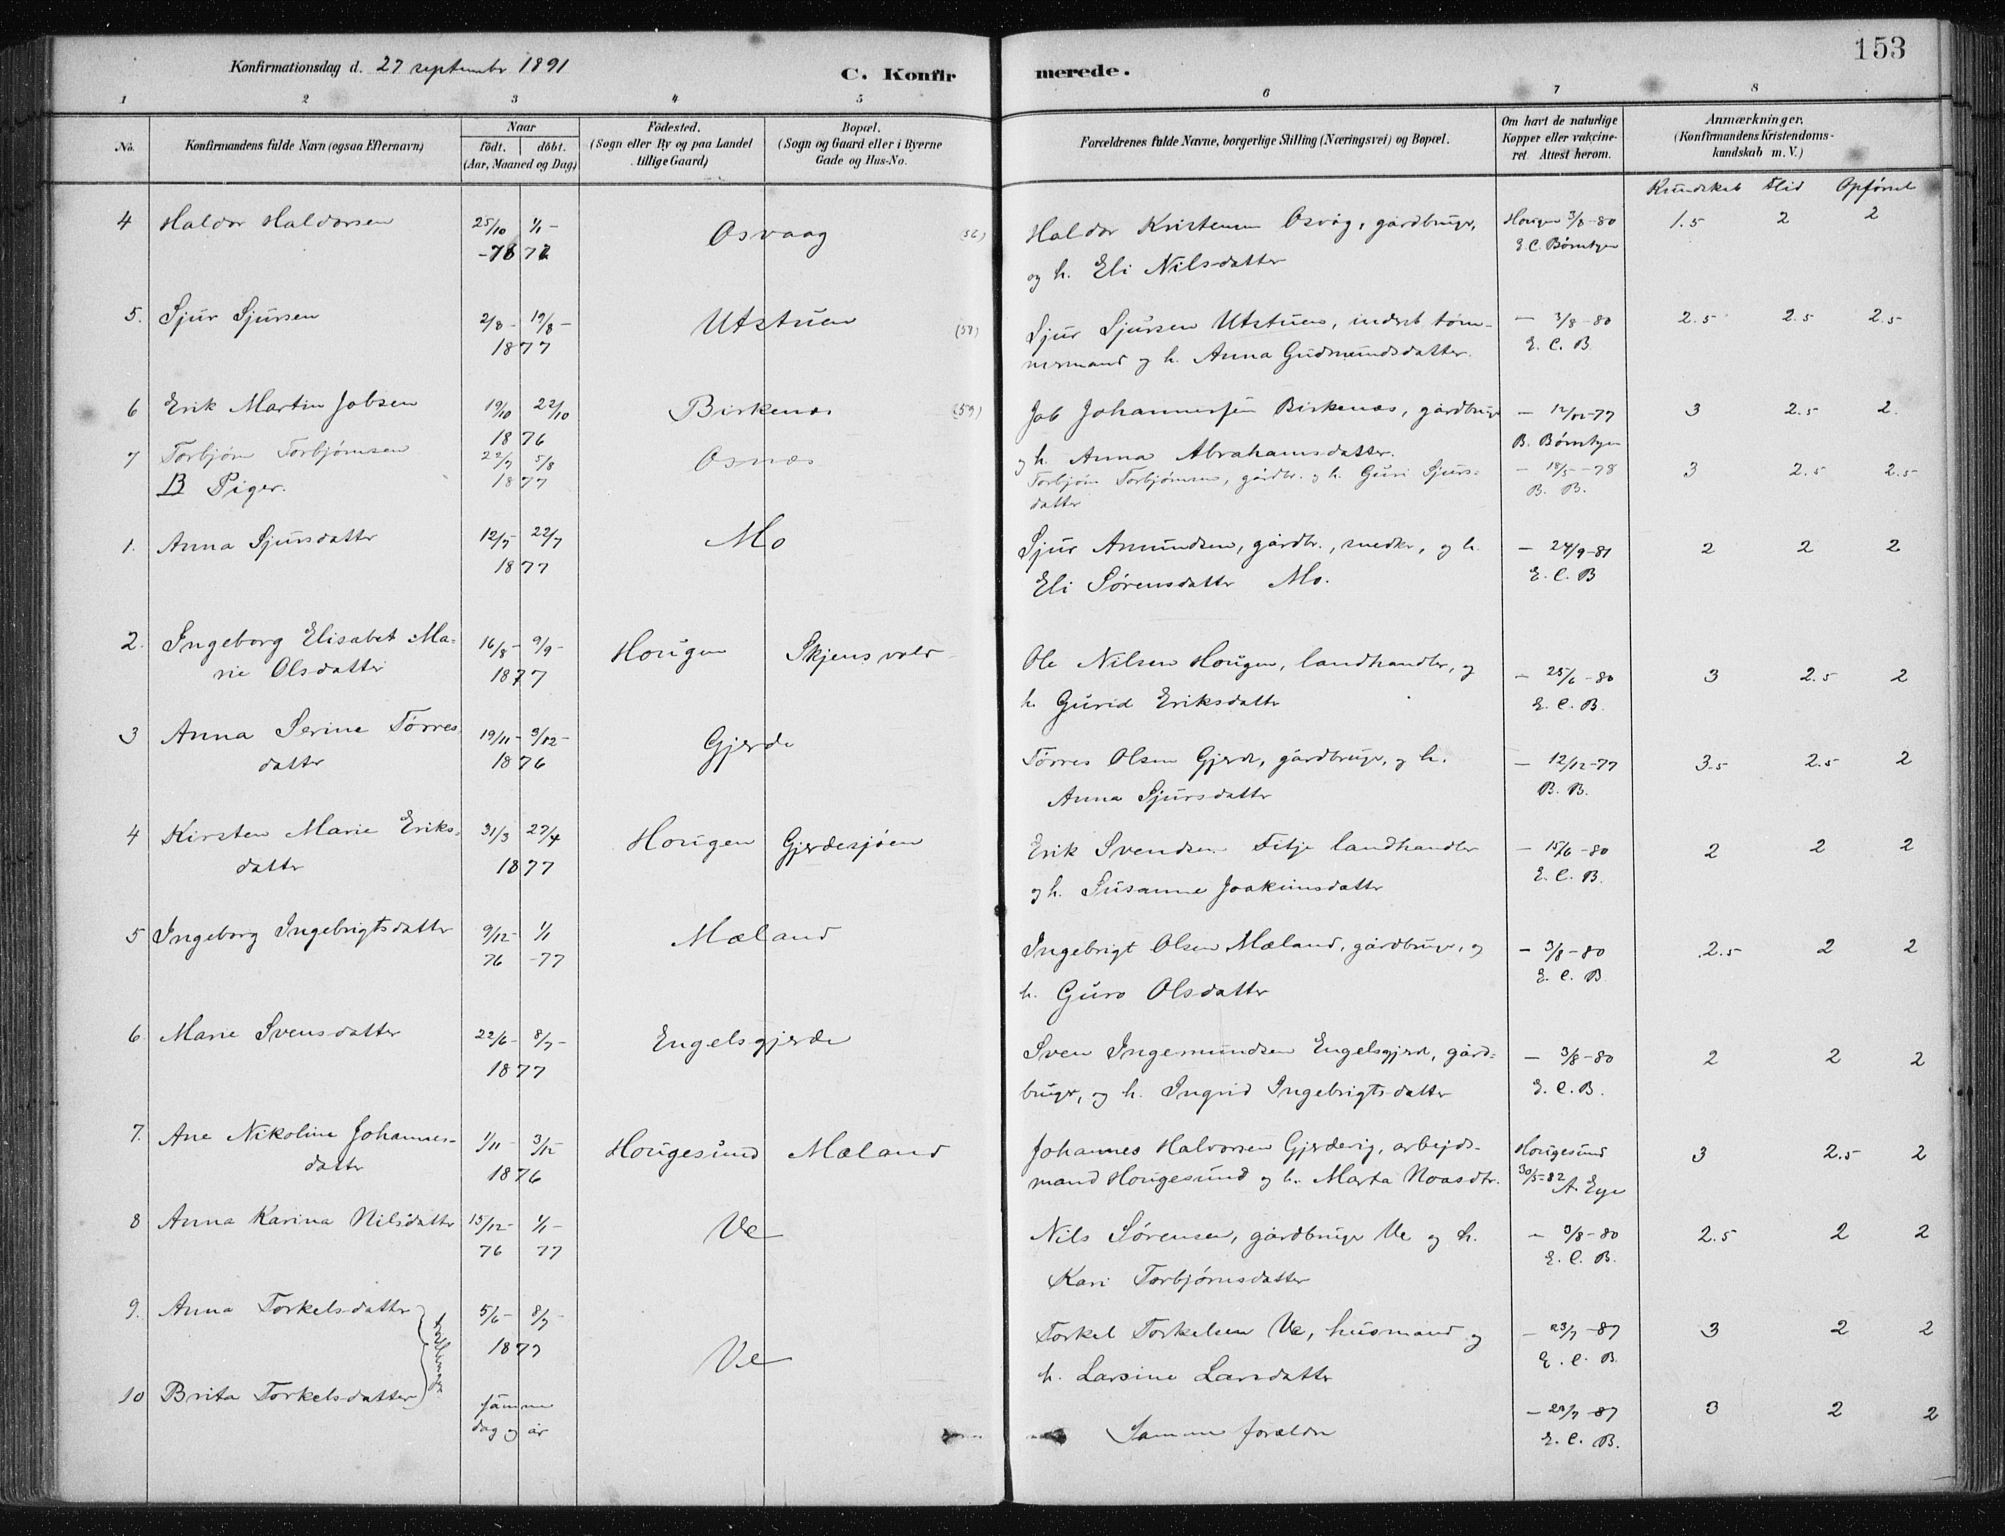 153
Konfirmationsdag d. 27 september 1891
C. Konfirmerede.
1 2 3 4 5 6 7 8
No. Konfirmandens fulde Navn (ogsaa Efternavn) Naar födt. döbt. (Aar, Maaned og Dag) Födested. (Sogn eller By og paa Landet tillige Gaard) Bopæl. (Sogn og Gaard eller i Byerne Gade og Hus-No. Forældrenes fulde Navne, borgerlige Stilling (Næringsvei) og Bopæl. Om havt de naturlige Kopper eller vakcineret. Attest herom. Anmærkninger. (Konfirmandens Kristendomskundskab m. V.)
Kundskab Flid Opførsel
4 Haldor Haldorsen 25/10 1/1 - Osvaag (56) Haldor Kristensen Osvåg, gårdbruger, Hougen 3/8-80 1.5 2 2
-76 77 og h. Eli Nilsdatter E. C. Børntzen
5. Sjur Sjursen 2/8- 19/8- Utstuen (58) Sjur Sjursen Utstuen, inderst tøm- - 3/8-80 2.5 2.5 2.5
1877 mermand og h. Anna Gudmundsdatter. E. C. B.
6 Erik Martin Jobsen 19/10 22/10 Birkenæs (59) Job Johannessen Birkenæs, gårdbruger - 12/12-77 3 2.5 2.
1876 og h. Anna Abrahamsdatter. B. Børntzen
7 Torbjørn Torbjørnsen 22/7 5/8 Osnæs Torbjørn Torbjørnsen, gårdbr. og h. Guri Sjurs- - 18/5-78 3 2.5 2.5
1877 datter B. B.
B Piger.
1. Anna Sjursdatter 12/7- 22/7 Mo Sjur Amundsen, gårdbr., snedker, og h. - 24/9-81 2 2 2
1877 Eli Sørensdatter Mo. E. C. B
2. Ingeborg Elisabet Ma- 16/8- 9/9- Hougen Skjensvold Ole Nilsen Hougen, landhandler, og - 25/6-80 3 2.5 2
rie Olsdatter 1877 h. Gurid Eriksdatter E. C. B.
3 Anna Serine Tørres 19/11- 3/12- Gjerde Tørres Olsen Gjerde, gårdbruger, og h. - 12/12-77 3.5 2.5 2
datter 1876 Anna Sjursdatter B. B.
4 Kirsten Marie Eriks- 31/3 27/4 Hougen Gjerdesjøen Erik Svendsen Fitje landhandler - 15/6-80 2 2 2
datter 1877 og h. Susanne Joakimsdatter E. C. B.
5 Ingeborg Ingebrigtsdatter 9/12- 1/1 Mæland Ingebrigt Olsen Mæland, gårdbruger, og - 3/8-80 2.5 2 2
76 -77 h. Guro Olsdatter E. C. B
6. Marie Svensdatter 22/6- 8/7- Engelsgjerde Sven Ingemundsen Engelsgjerde, gård- - 3/8-80 2 2 2
1877 bruger, og h. Ingrid Ingebrigtsdatter E. C. B.
7. Ane Nikoline Johannes- 1/11- 3/12 Hougesund Mæland Johannes Halvorsen Gjerdevig, arbejds- Hougesund 3 2.5 2
datter 1876 mand Hougesund og h. Marta Noasdtr. 30/5-82 A. Eye
8 Anna Karina Nilsdatter 15/12- 1/1- Ve Nils Sørensen, gårdbruger Ve og h. - 3/8-80 2.5 2 2
76 77 Kari Torbjørnsdatter E. C. B.
9. Anna Torkelsdatter 5/6- 8/7- Ve Torkel Torkelsen Ve, husmand og - 23/7-87 3 2 2
tvillinger
1877 h. Larsine Larsdatter E. C. B.
10 Brita Torkelsdatter samme Samme forældre - 23/7-87 3 2 2
dag og år E. C. B.